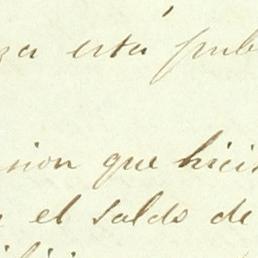 za está pub
sion que hici
el saldo de